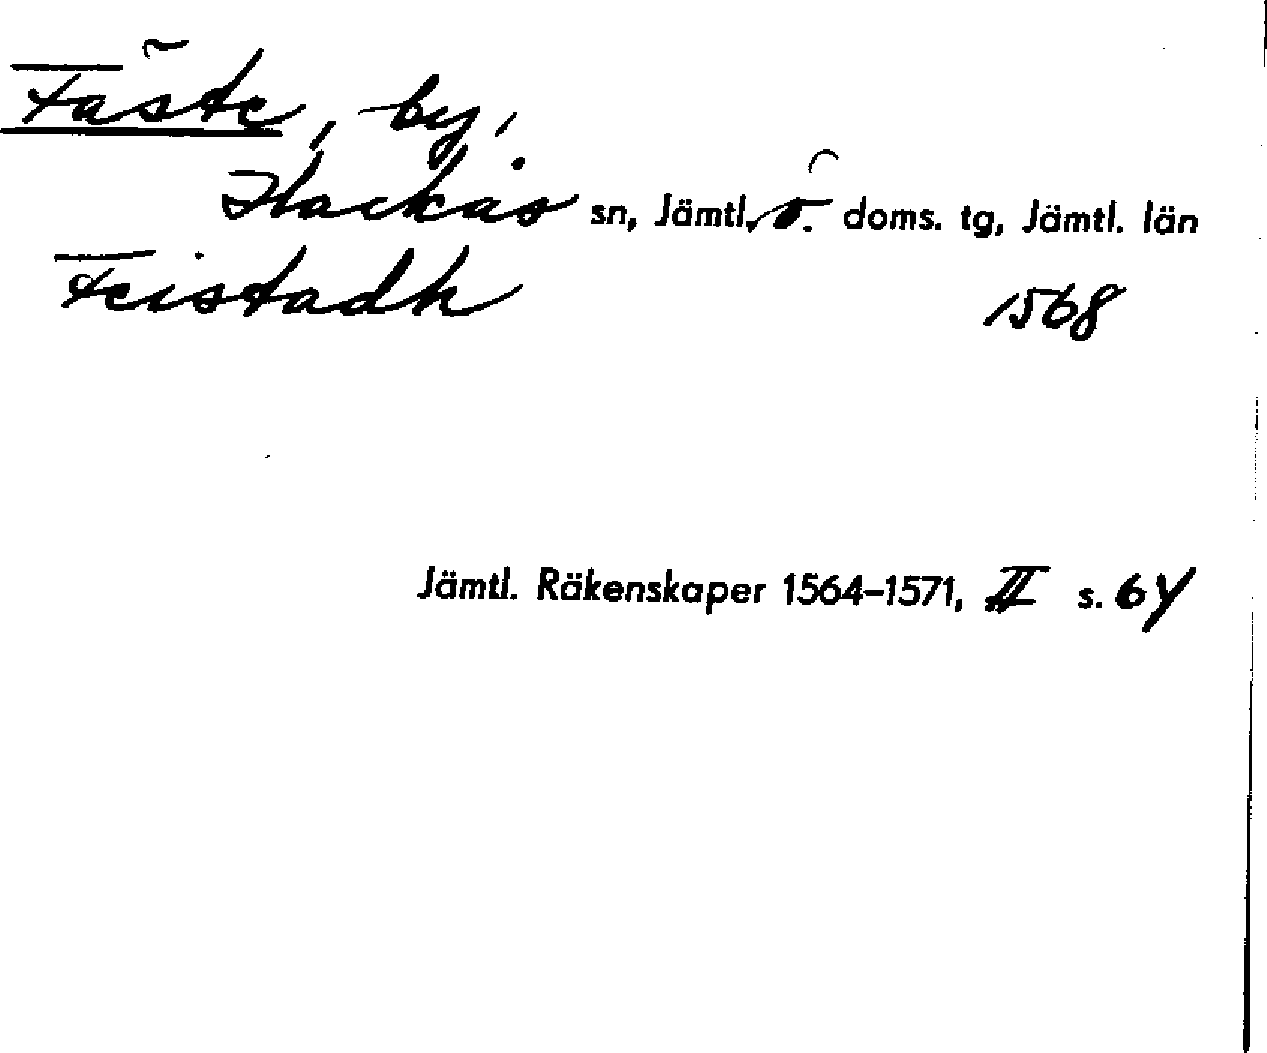 Fäste, by,
Hackås sn, Jämtl. ö. doms. tg, Jämtl. län
Feistadh 1568
Jämtl. Räkenskaper 1564-1571, II s. 64